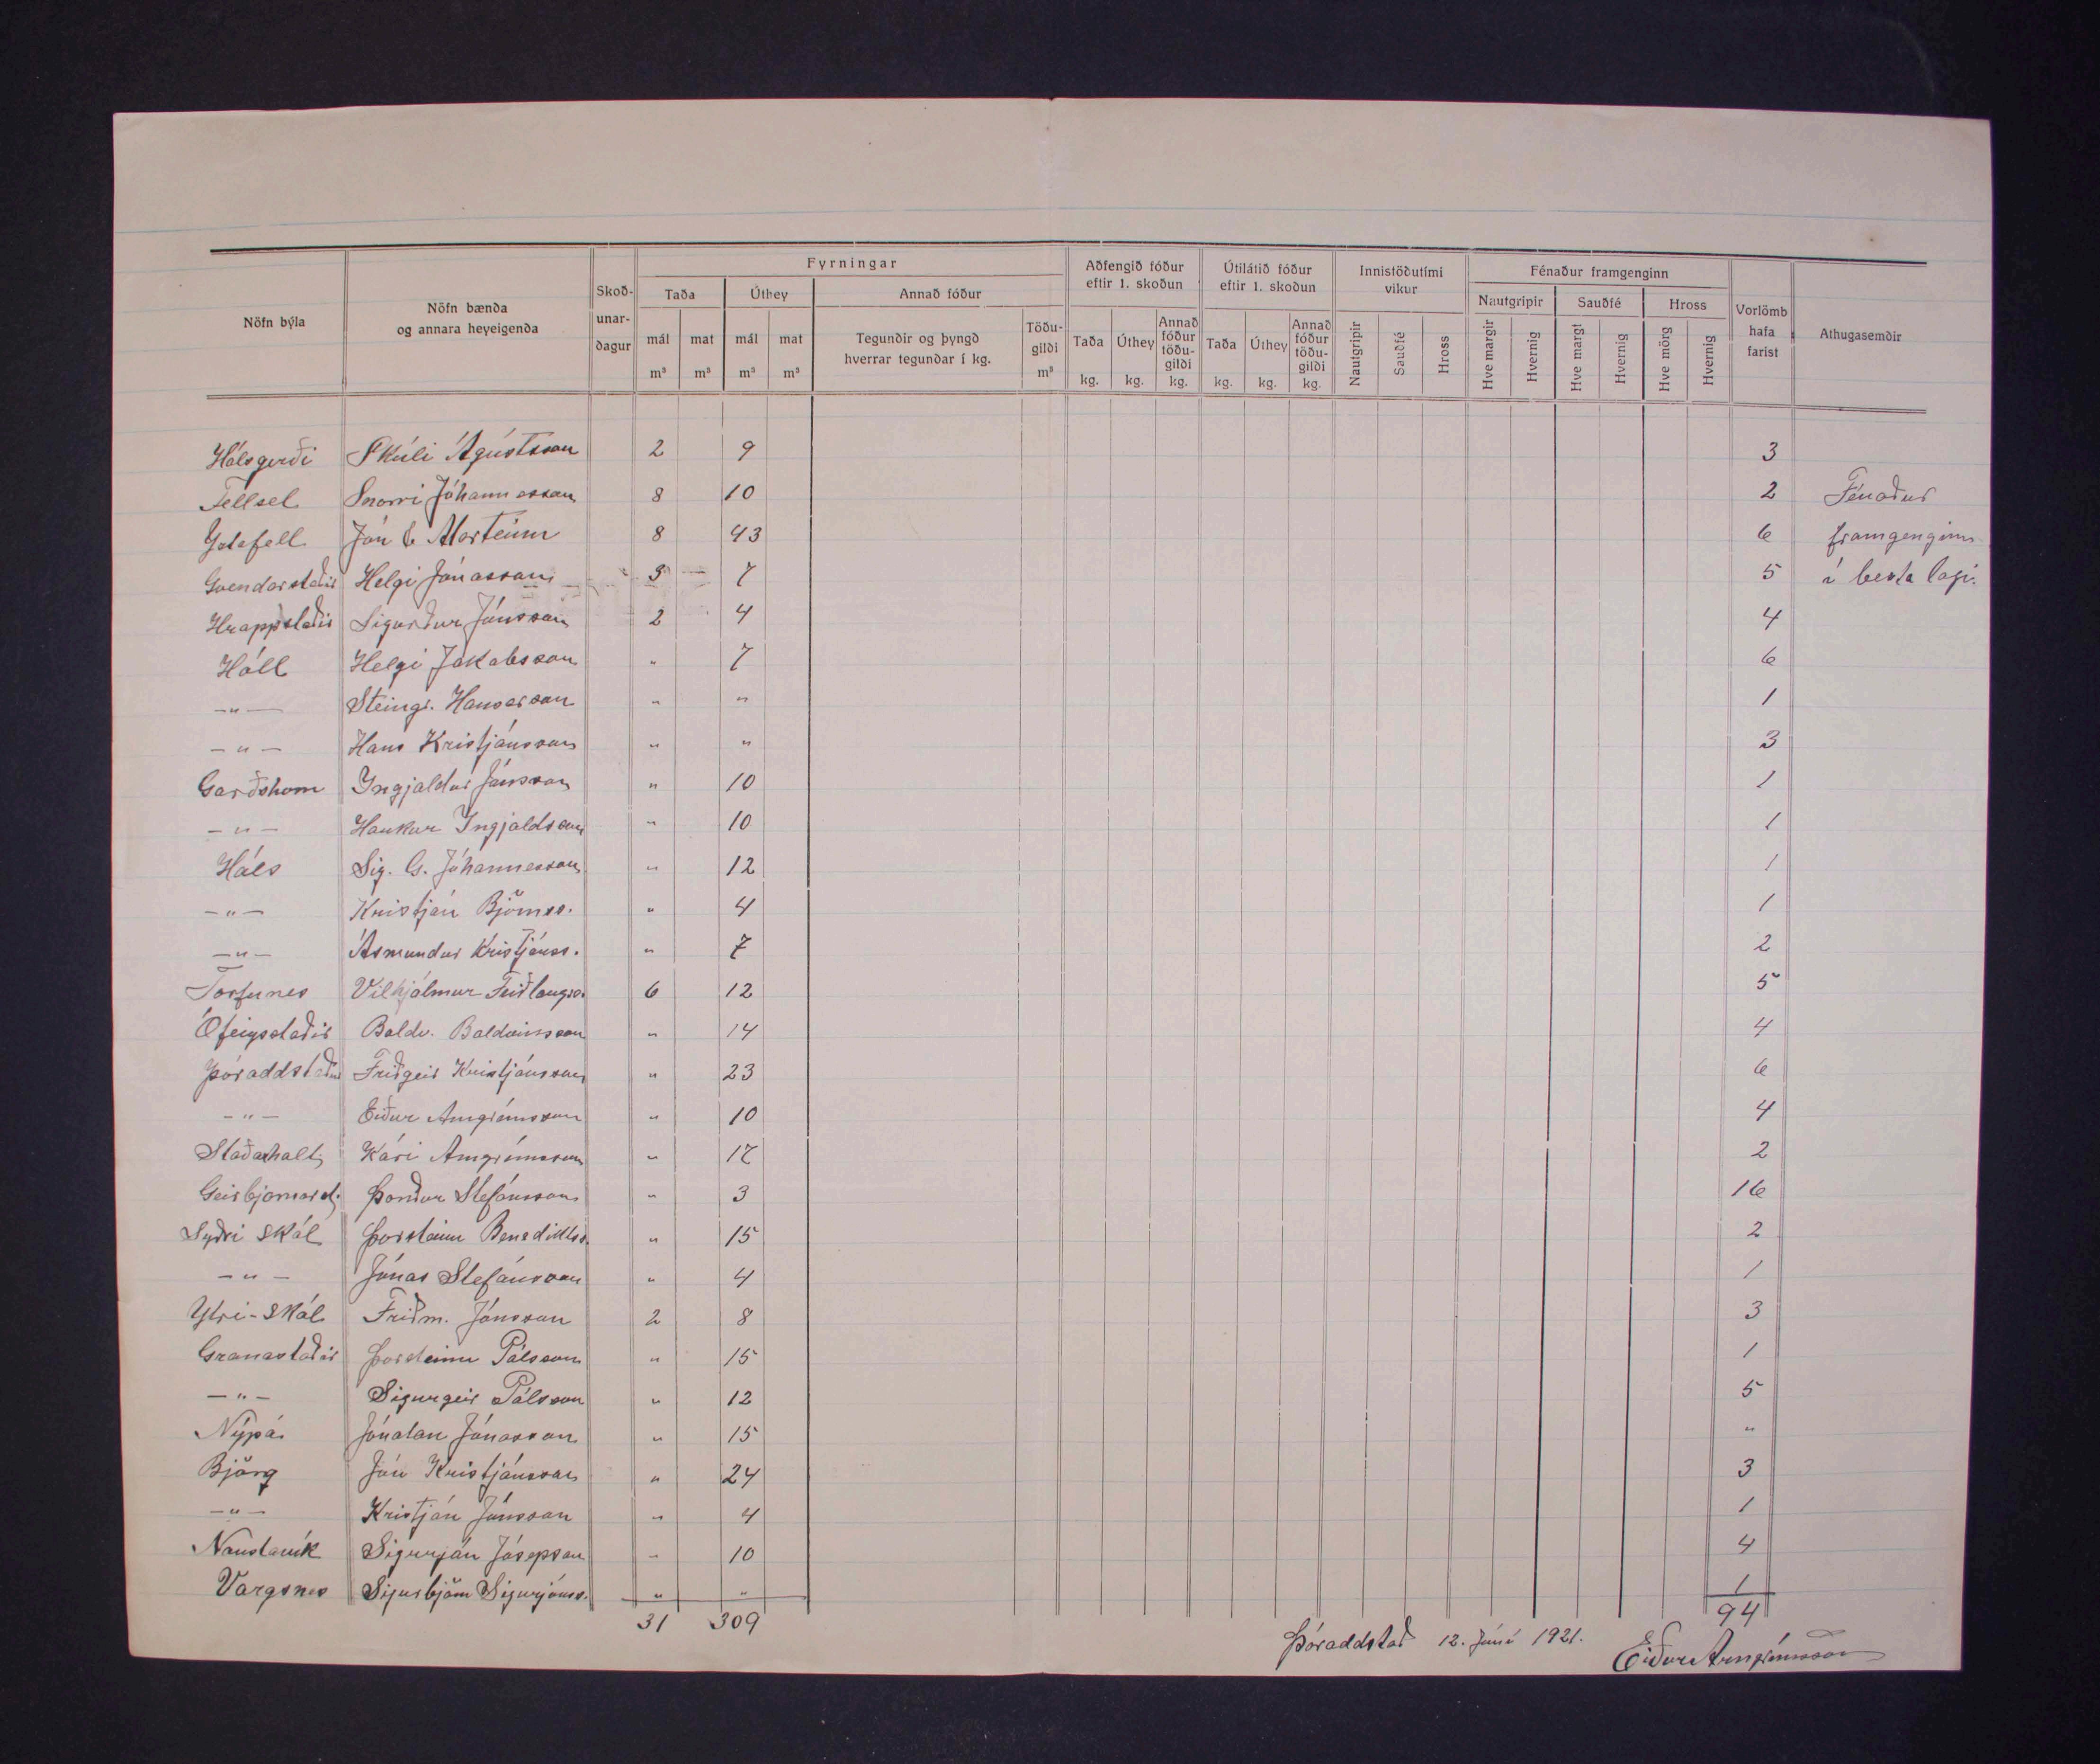 Fyrningar
Aðfengið fóður eftir 1. skoðun
Útilátið fóður eftir 1. skoðun
Innistöðutími vikur
Fénaður framgenginn
Nöfn býla
Nöfn bænda og annara heyeigenda
Skoð-unar-dagur
Taða
Úthey
Annað fóður
Nautgripir
Sauðfé
Hross
Vorlömb hafa farist
Athugasemdir
mál m³
mat m³
mál m³
mat m³
Tegundir og þyngd hverrar tegundar í kg.
Töðu-gildi m³
Taða kg.
Úthey kg.
Annað fóður töðu-gildi kg.
Taða kg.
Úthey kg.
Annað fóður töðu-gildi kg.
Nautgripir
Sauðfé
Hross
Hve margir
Hvernig
Hve margt
Hvernig
Hve mörg
Hvernig
Hálsgerði Skúli Ágústsson 2 9 3
Fellsel Snorri Jóhannesson 8 10 2 Fénaður
Gatafell Jón & Marteinn 8 43 6 framgenginn
Gvendarstaðir Helgi Jónasson 3 7 5 í besta lagi.
Hrappstaðir Sigurður Jónsson 2 4 4
Hóll Helgi Jakabsson " 7 6
—"— Steingr. Hansarson " " 1
—"— Hans Kristjánsson " " 3
Garðshorn Ingjaldur Jónsson " 10 1
—"— Haukur Ingjaldsson " 10 1
Háls Sig. G. Jóhannesson " 12 1
—"— Kristján Björnss. " 4 1
—"— Ásmundur Kristjánss. " 7 2
Torfunes Vilhjálmur Friðlaugss. 6 12 5
Ófeigsstaðir Baldv. Baldvinsson " 14 4
Þóraddstaður Friðgeir Kristjánsson " 23 6
—"— Eiður Arngrímsson " 10 4
Staðarholt Kári Arngrímsson " 17 2
Geirbjarnarst. Þórður Stefánsson " 3 16
Syðri Skál Þorsteinn Benediktss. " 15 2
—"— Jónas Stefánsson " 4 1
Ytri-Skál Friðm. Jónsson 2 8 3
Granastaðir Þorsteinn Pálsson " 15 1
—"— Sigurgeir Pálsson " 12 5
Nýpá Jónatan Jónasson " 15 "
Björg Jón Kristjánsson " 24 3
—"— Kristján Jónsson " 4 1
Naustavík Sigurján Jósepsson " 10 4
Vargsnes Sigurbjörn Sigurjónss. " " 1
31 309 94
Þóraddstað 12. Júní 1921.
Eiður Arngrímsson